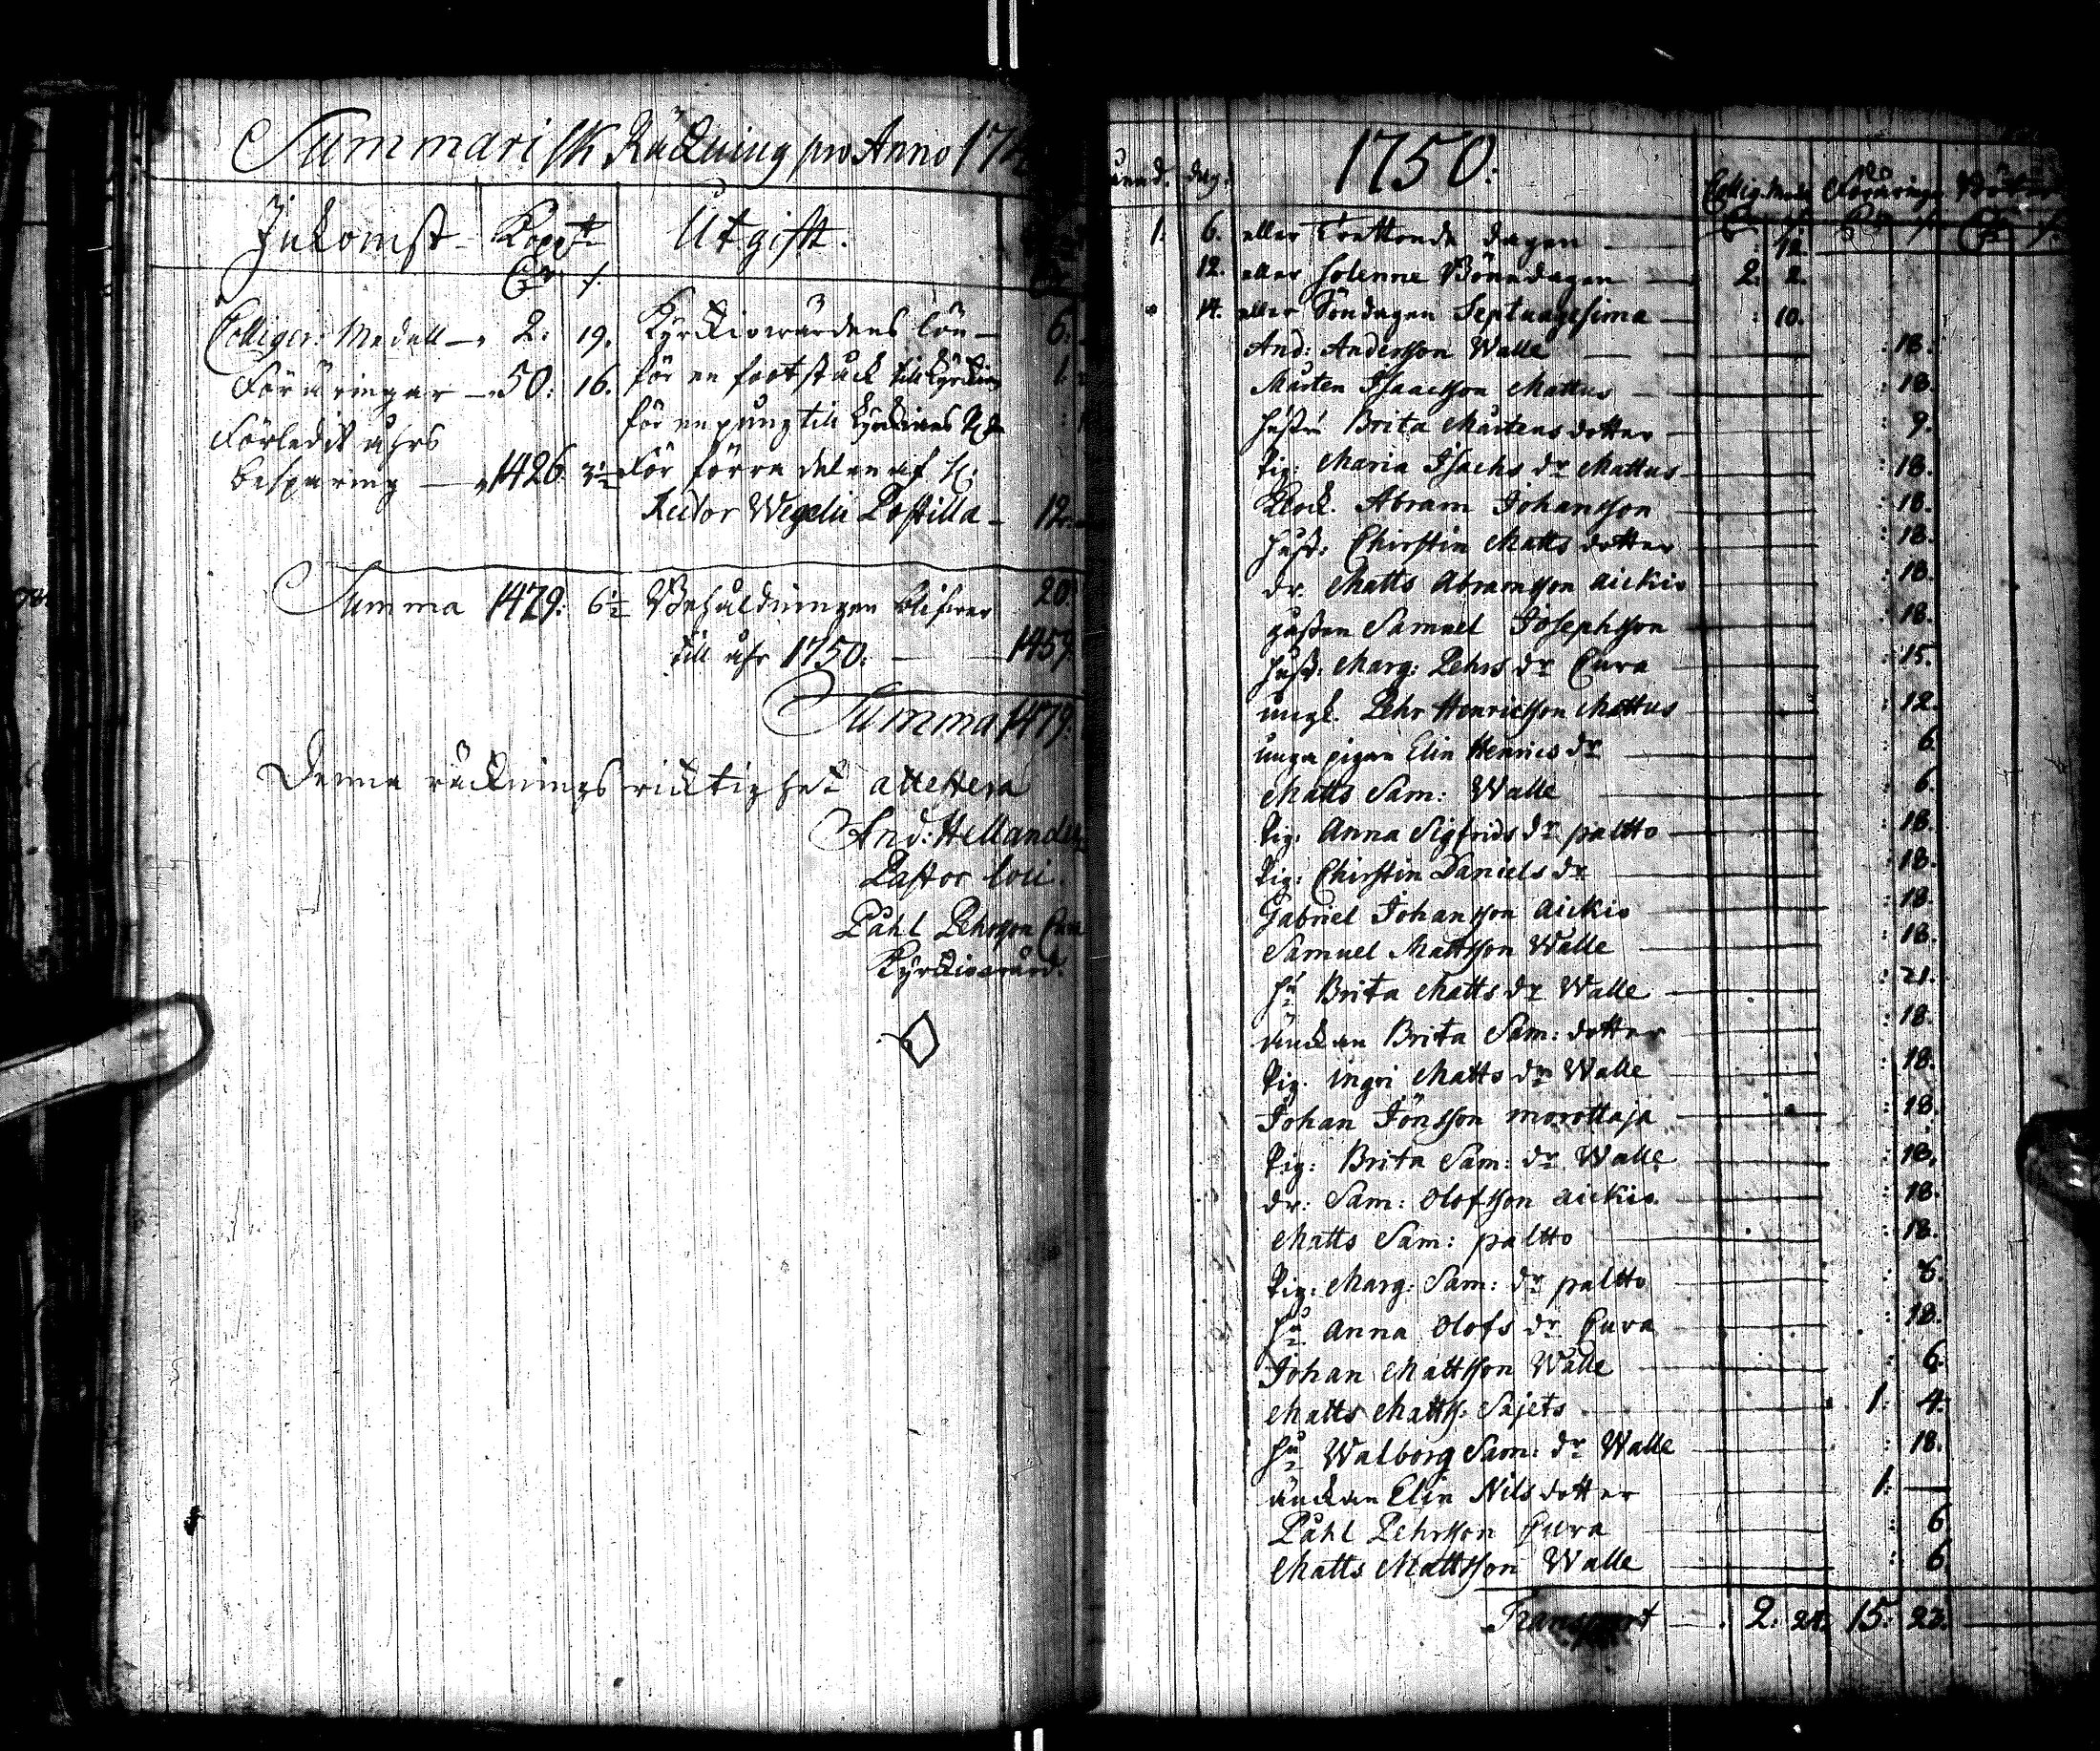 Summarisk Räckning pro Anno 174
Inkomst Kopp:t Utgift.
Colliger: Medell — 2: 19. Kyrckiowärdens lön — 6:
Föräringar — 50: 16. för en footstuck till Kyrckian 1:
för en pung till Kyrckians
Förledit åhrs
besparing — 1426: 3½ För förra delen af H:
Rector Wegelii Postilla — 12:
Summa 1479: 6½ Behåldningen blifwer 20:
till åhr 1750: — 1459:
Summa 1479:
Denna räcknings richtighet attestera
And: Hellander
Pastor loci.
Påhl Pehrsson Cura
Kyrckiowärd.
1750:
dag. Collig: Medel Föräringar
1. 6. eller Trettonde dagen — : 12.
12. eller solenne Bönedagen — 2: 2.
14. eller Söndagen Septuagesima — : 10.
And: Andersson Walle — : 18.
Mårten Isaacsson Mattus — : 18.
Hustru Brita Mårtens dotter — : 9.
Pig: Maria Isachs dr Mattus — : 18.
Klock. Abram Johansson — : 18.
Hust: Chirstin Matts dotter — : 18.
dr. Matts Abramsson aickio — : 18.
gossen Samuel Josephsson — : 18.
Hust: Marg: Pehrs dr Cura — : 15.
ungk. Pehr Henricsson Mattus — : 12.
unga pigan Elin Henrics dr — : 6.
Matts Sam: Walle — : 6.
Pig: Anna Sigfrids dr paltto — : 18.
Pig: Chirstin Daniels dr — : 18.
Gabriel Johansson aickio — : 18.
Samuel Mattsson Walle — : 18.
Hu Brita Matts dr Walle — : 21.
änckan Brita Sam: dotter — : 18.
Pig. ingri Matts dr Walle — : 18.
Johan Jönsson morottaja — : 18.
Pig: Brita Sam: dr Walle — : 18.
dr: Sam: Olofsson aickio — : 18.
Matts Sam: paltto — : 18.
Pig: Marg: Sam: dr paltto — : 6.
Hu Anna Olofs dr Cura — : 18.
Johan Mattsson Walle — : 6.
Matts Matts: Sajets — 1: 4.
Hu Walborg Sam: dr Walle — : 18.
änckan Elin Nils dotter — 1: —
Påhl Pehrsson Cura — : 6.
Matts Mattsson Walle — : 6.
Transport — 2: 24. 15: 23.